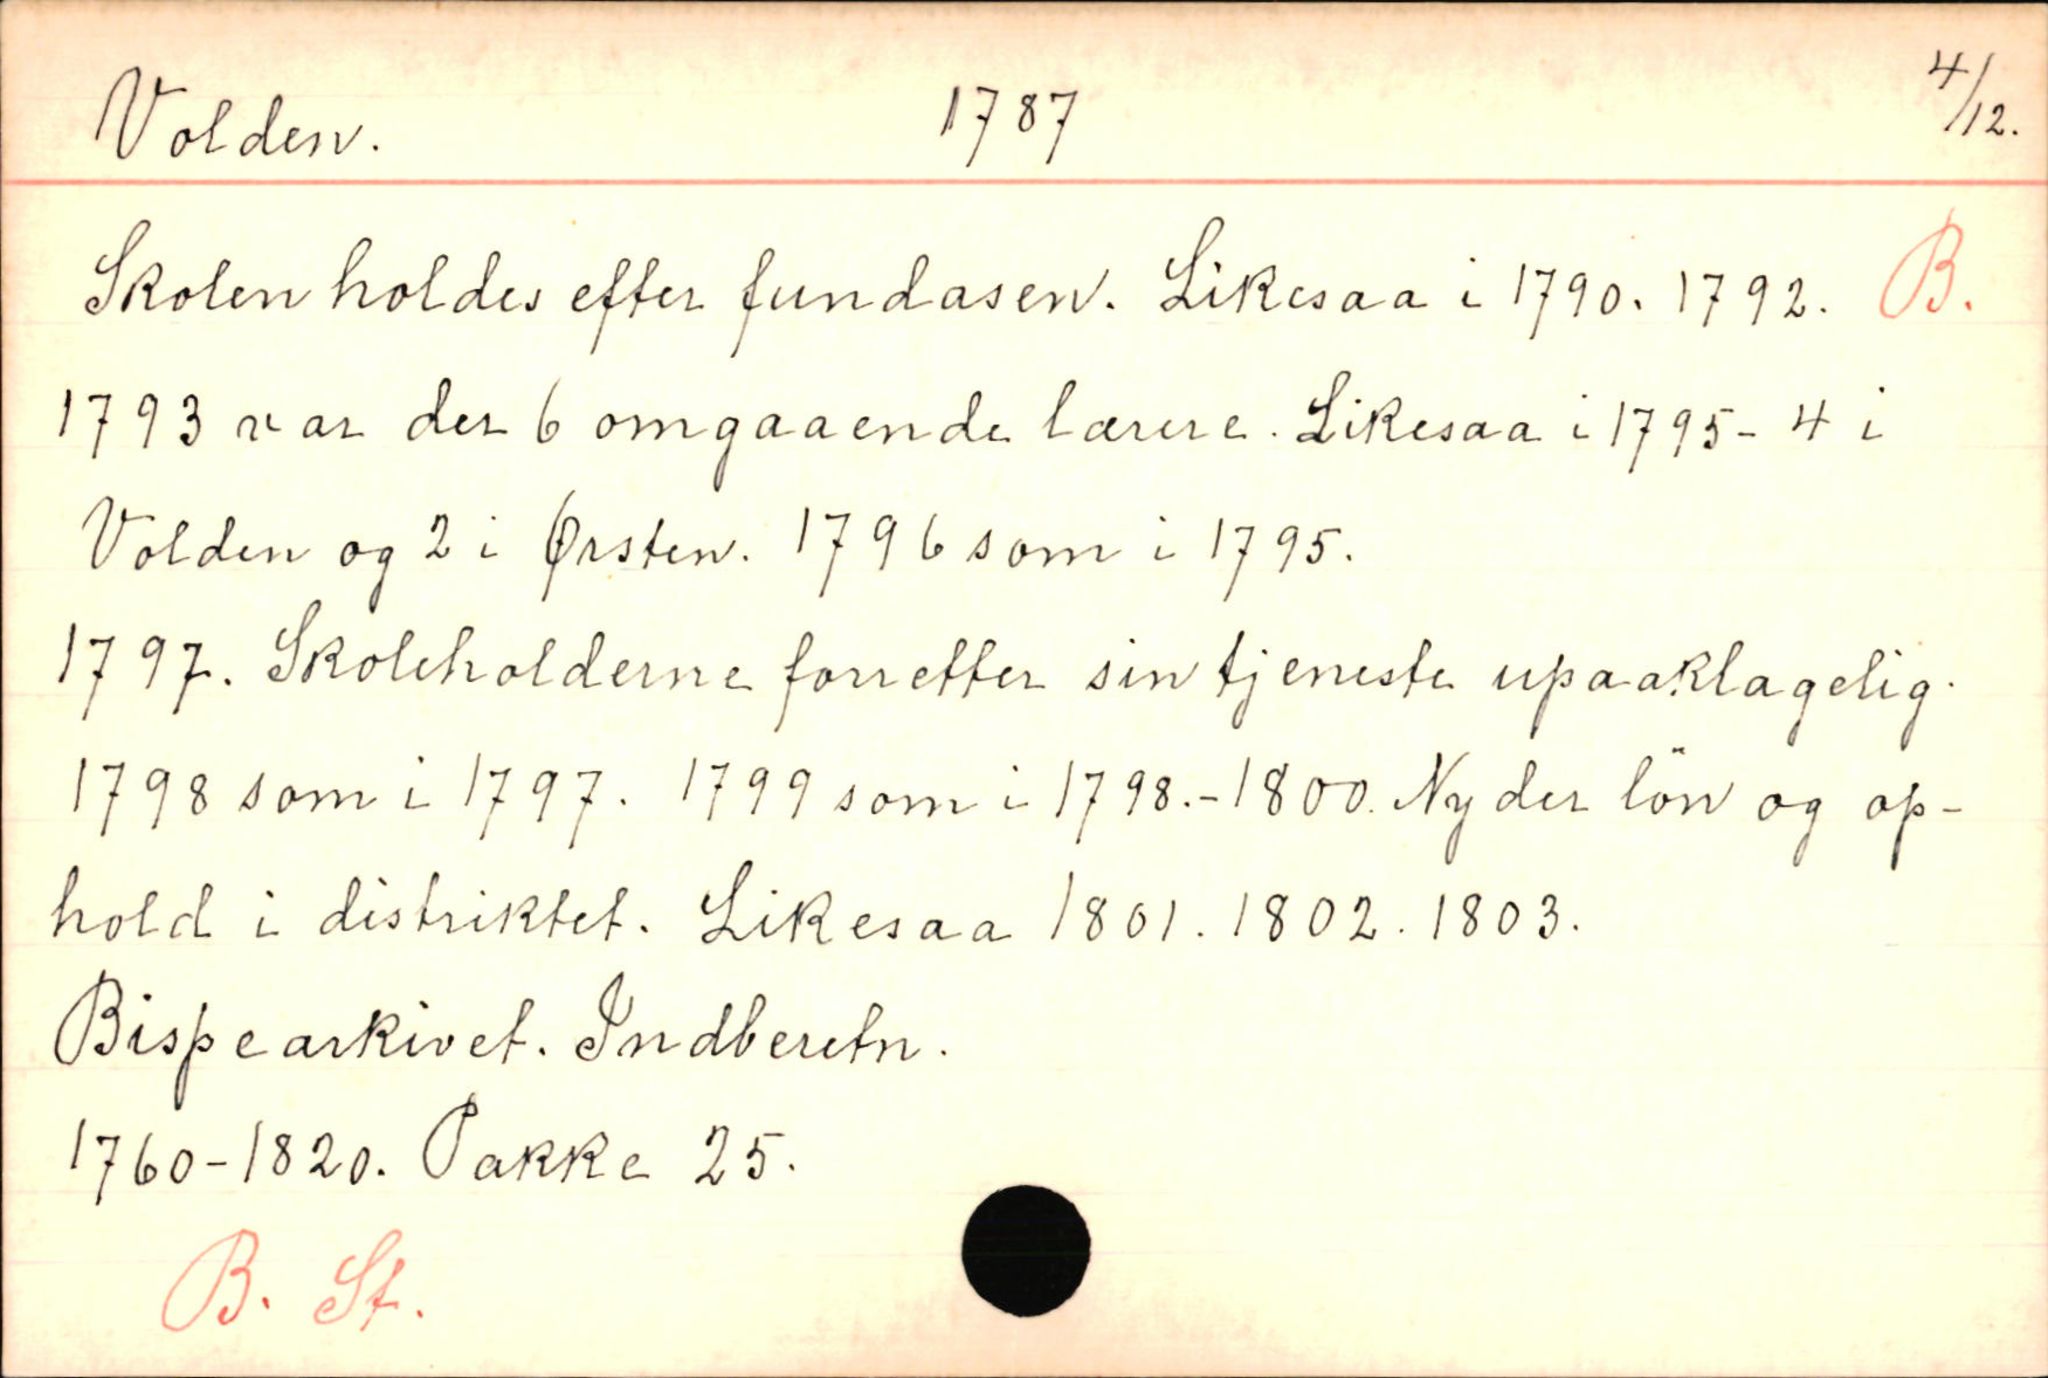 Volden. 1787 4/12.
Skolen holdes efter fundasen. Likesaa i 1790. 1792. B.
1793 var der 6 omgaaende lærere. Likesaa i 1795 - 4 i
Volden og 2 i Ørsten. 1796 som i 1795.
1797. Skoleholderne forretter sin tjeneste upaaklagelig.
1798 som i 1797. 1799 som i 1798.-1800. Nyder lön og op-
hold i distriktet. Likesaa 1801. 1802. 1803.
Bispearkivet. Indberetn.
1760-1820. Pakke 25.
B. St.